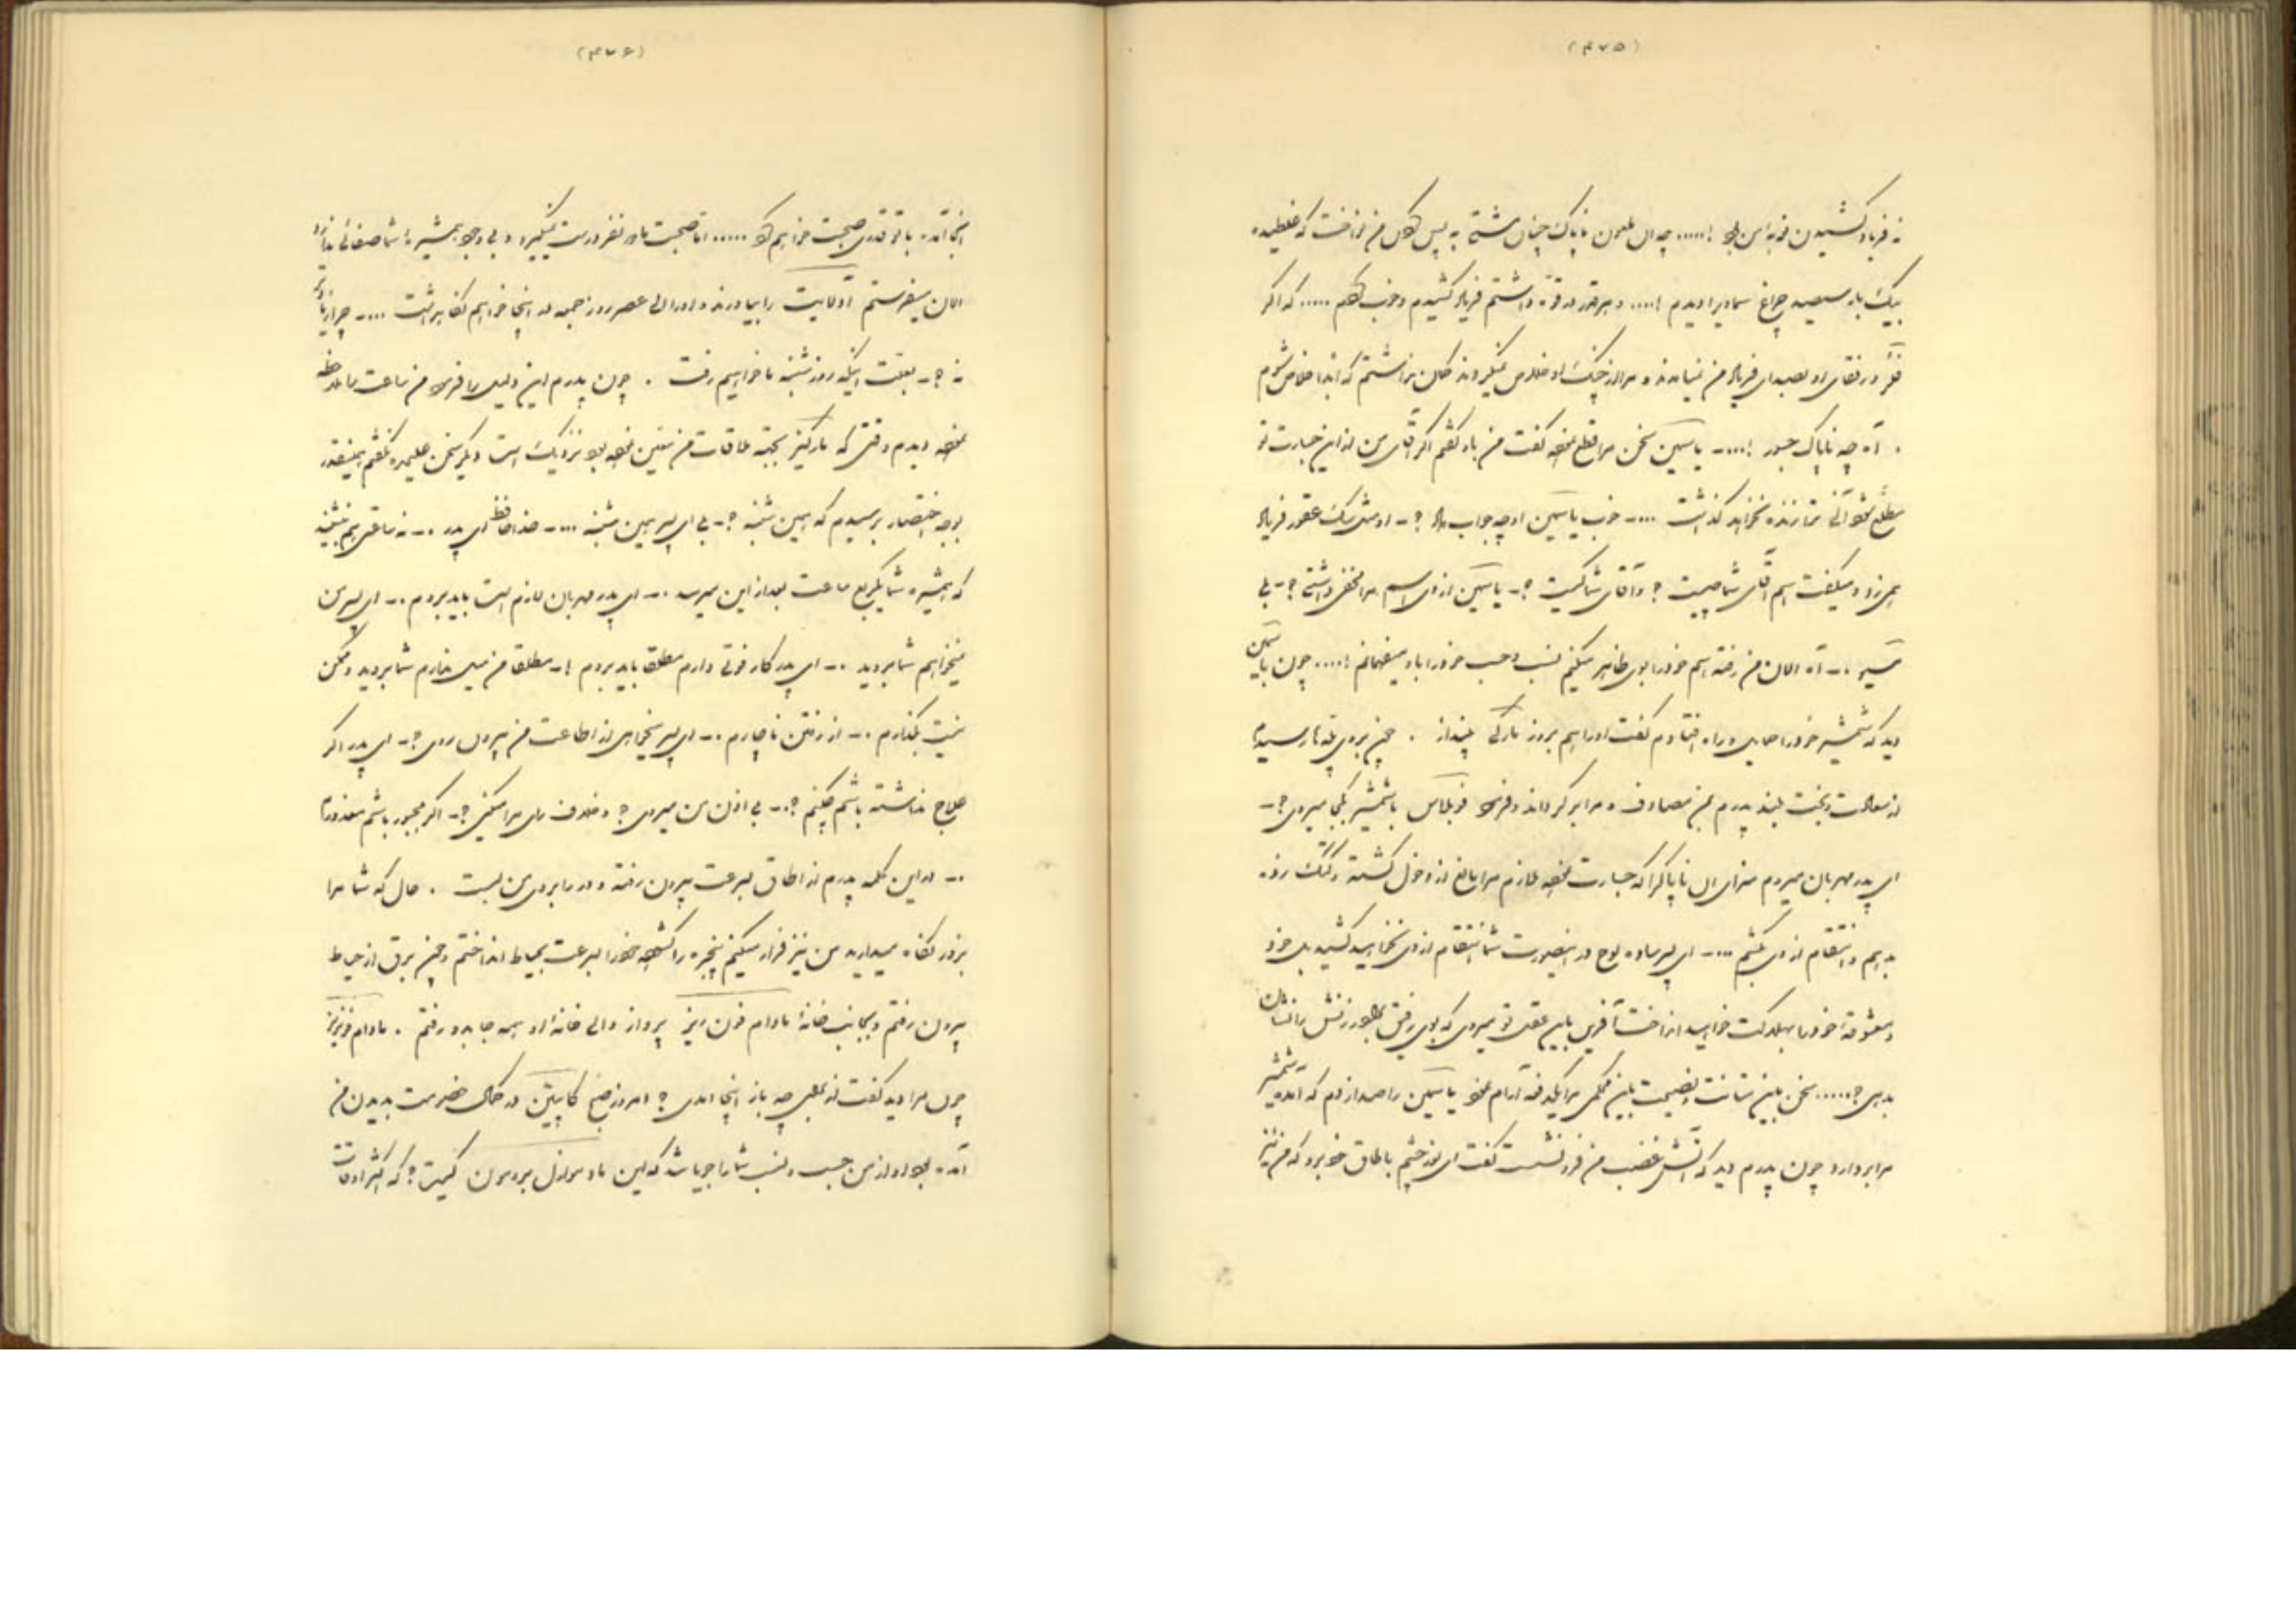 (۴۷۵)
نه فریاد کشیدن نوبه من بود !..... چه آن ملعون ناپاک چنان مشتی به پس کله من نواخت که غلطیده
بیک بار سیصد چراغ دیدم !.... و هر قدر که قوه داشتم فریاد کشیدم و خوب کردم ..... که اگر
و رفقای او بصدای فریاد من نمیامدند و مرا از چنگ او خلاص نمیکردند گمان نداشتم که ابدا خلاص شوم
. آه چه ناپاک جسور !...ـ یاسمین سخن مرا قطع نموده گفت من باو گفتم اگر آقای من از این جسارت تو
مطلع شود آنی ترا زنده نخواهد گذاشت ...ـ خوب یاسمین او چه جواب داد ؟ـ او مثل سگ عقور فریاد
میزد و میگفت اسم آقای شما چیست ؟ و آقای شما کیست ؟ـ یاسمین از وی اسم مرا مخفی داشتی ؟ـ بلی
مسیو .ـ آه الان من رفته اسم خود را بوی ظاهر میکنم نسب و حسب خود را باو میفهمانم !.... چون یاسمین
دید که شمشیر خود را حمایل و راه افتادم گفت او را هم بروز مارکی بینداز . من بروی پله نارسیده
از سعادت و بخت بلند پدرم بمن مصادف و مرا برگرداند و فرمود فوبلاس با شمشیر بکجا میروی ؟ـ
ای پدر مهربان میروم سزای آن ناپاک را که جسارت نموده ملازم مرا مانع از دخول گشته و کتک زده
بدهم و انتقام از وی بکشم ...ـ ای پسر ساده لوح در اینصورت شما انتقام از وی نخواهید کشید بل خود
و معشوقه خود را بهلاکت خواهید انداخت آفرین باین عقل تو میروی که بوی رفیق بطور زنش را نشان
بدهی ؟..... سخن باین متانت و نصیحت باین محکمی مرا یکدفعه آرام نمود یاسمین را صدا زدم که آمده شمشیر
مرا بردارد چون پدرم دید که آتش غضب من فرو نشست گفت ای نور چشم باطاق خود برو که من نیز
(۴۷۶)
اینجا آمده با تو قدری صحبت خواهم کرد ..... اما صحبت ما دو نفر درست نمیگیرد و بی وجود همشیره شما صفائی ندارد
الان میفرستم آدلایت را بیاورند و او را الی عصر روز جمعه در اینجا خواهیم نگاه داشت ...ـ چرا زیادتر
نه ؟ـ بعلت اینکه روز شنبه ما خواهیم رفت . چون پدرم این دلیل را فرمود من ساعت را ملاحظه
نموده دیدم وقتی که مارکیز بجهة ملاقات من معین نموده بود نزدیک است دیگر سخن علیحده نگفتم همینقدر
بوجه اختصار پرسیدم که همین شنبه ؟ـ بلی ای پسر همین شنبه ...ـ خدا حافظ ای پدر .ـ نه ساعتی هم بنشینید
که همشیره شما یکربع ساعت بعد از این میرسد .ـ ای پدر مهربان لازم است باید بروم .ـ ای پسر من
نمیخواهم شما بروید .ـ ای پدر کار فوتی دارم مطلقا باید بروم !ـ مطلقا من میل ندارم شما بروید و ممکن
نیست بگذارم .ـ از رفتن ناچارم .ـ ای پسر میخواهی از اطاعت من بیرون روی ؟ـ ای پدر اگر
علاج نداشته باشم چکنم ؟ـ بی اذن من میروی ؟ و خلاف رای مرا میکنی ؟ـ اگر مجبور باشم معذورم
.ـ در این کلمه پدرم از اطاق بسرعت بیرون رفته و در را بروی من بست . حال که شما مرا
بزور نگاه میدارید من نیز فرار میکنم پنجره را گشوده خود را بسرعت بحیاط انداختم و چون برق از حیاط
بیرون رفتم و بجانب خانهٔ مادام فون روز پرواز و الی خانه او همه جا بدو رفتم . مادام فونروز
چون مرا دید گفت از بهر چه باز اینجا آمدی ؟ امروز صبح کاپیتن در کمال خصومت بدیدن من
آمده بود و از من حسب و نسب شما را جویا شد که این مادموازل برومون کیست ؟ که اکثر اوقات